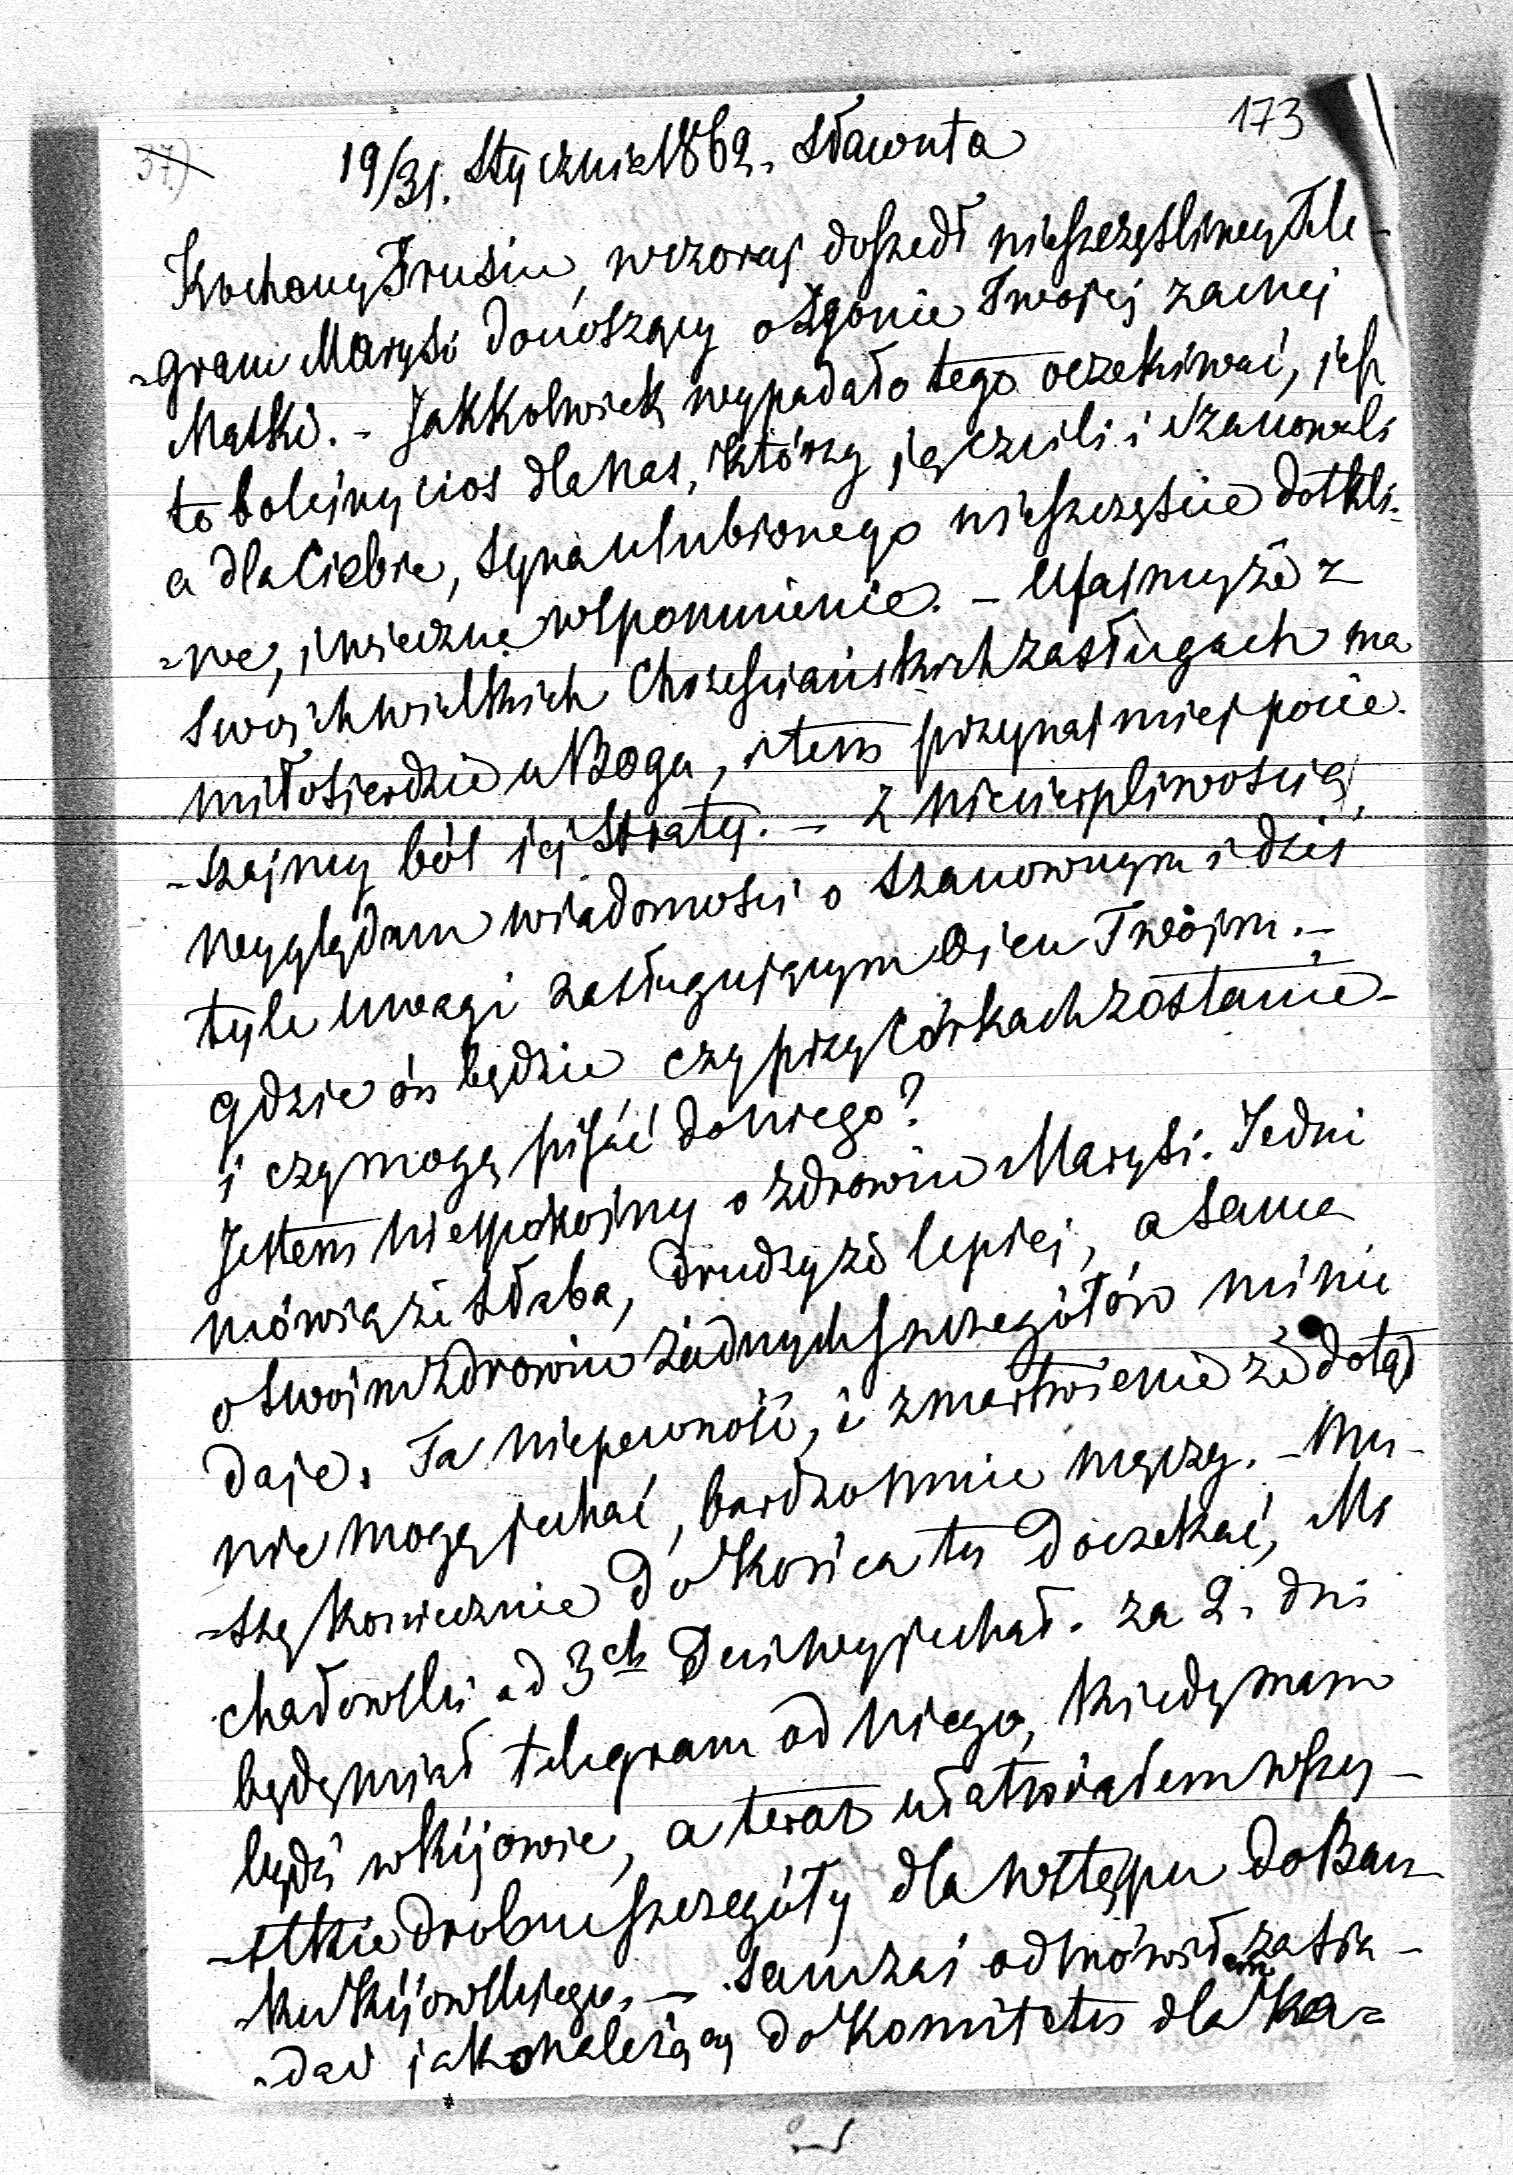 173
37.)
19/31. Stycznia 1862. Sławuta
Kochany Frusiu, wczoraj doszedł nieszczęśliwy Tele-
-gram Marysi donoszący o zgonie Twojej zacnej
Matki. - Jakkolwiek wypadało tego oczekiwać, jest
to boleśny cios dla nas, którzy ją czcili i szanowali
a dla Ciebie, syna ulubionego nieszczęście dotkli-
-we, i wieczne wspomnienie. - Ufajmy że z
swoich wielkich Chrześciańskich zasługach ma
miłosierdzie u Boga, i tem przynajmiej pocie-
-szajmy ból jej straty. - Z niecierpliwością,
wyglądam wiadomości o szanownym i dziś
tyle uwagi zasługującym Ojcu Twoim. -
gdzie ón będzie czy przy Córkach zostanie -
i czy mogę pisać do niego?
Jestem niespokojny o zdrowiu Marysi. Jedni
mówią że słaba, drudzy że lepiej, a sama
o swoim zdrowiu żadnych szczegółów mi nie
daje. Ta niepewność, i zmartwienie że dotąd
nie mogę jechać, bardzo mnie męczy. - Mu-
-szę koniecznie do końca tu doczekać, Mi
chałowski od 3ch Dni wyjechał. za 2. dni
będę miał telegram od niego, kiedy mam
bydź w Kijowie, a teraz ułatwiałem wszy-
-stkie drobne szczegóły dla wstępu do Ban-
-ku Kijowskiego. - Sam zaś odmówiłem zasia-
-dać jako należący do Komitetu dla ka=